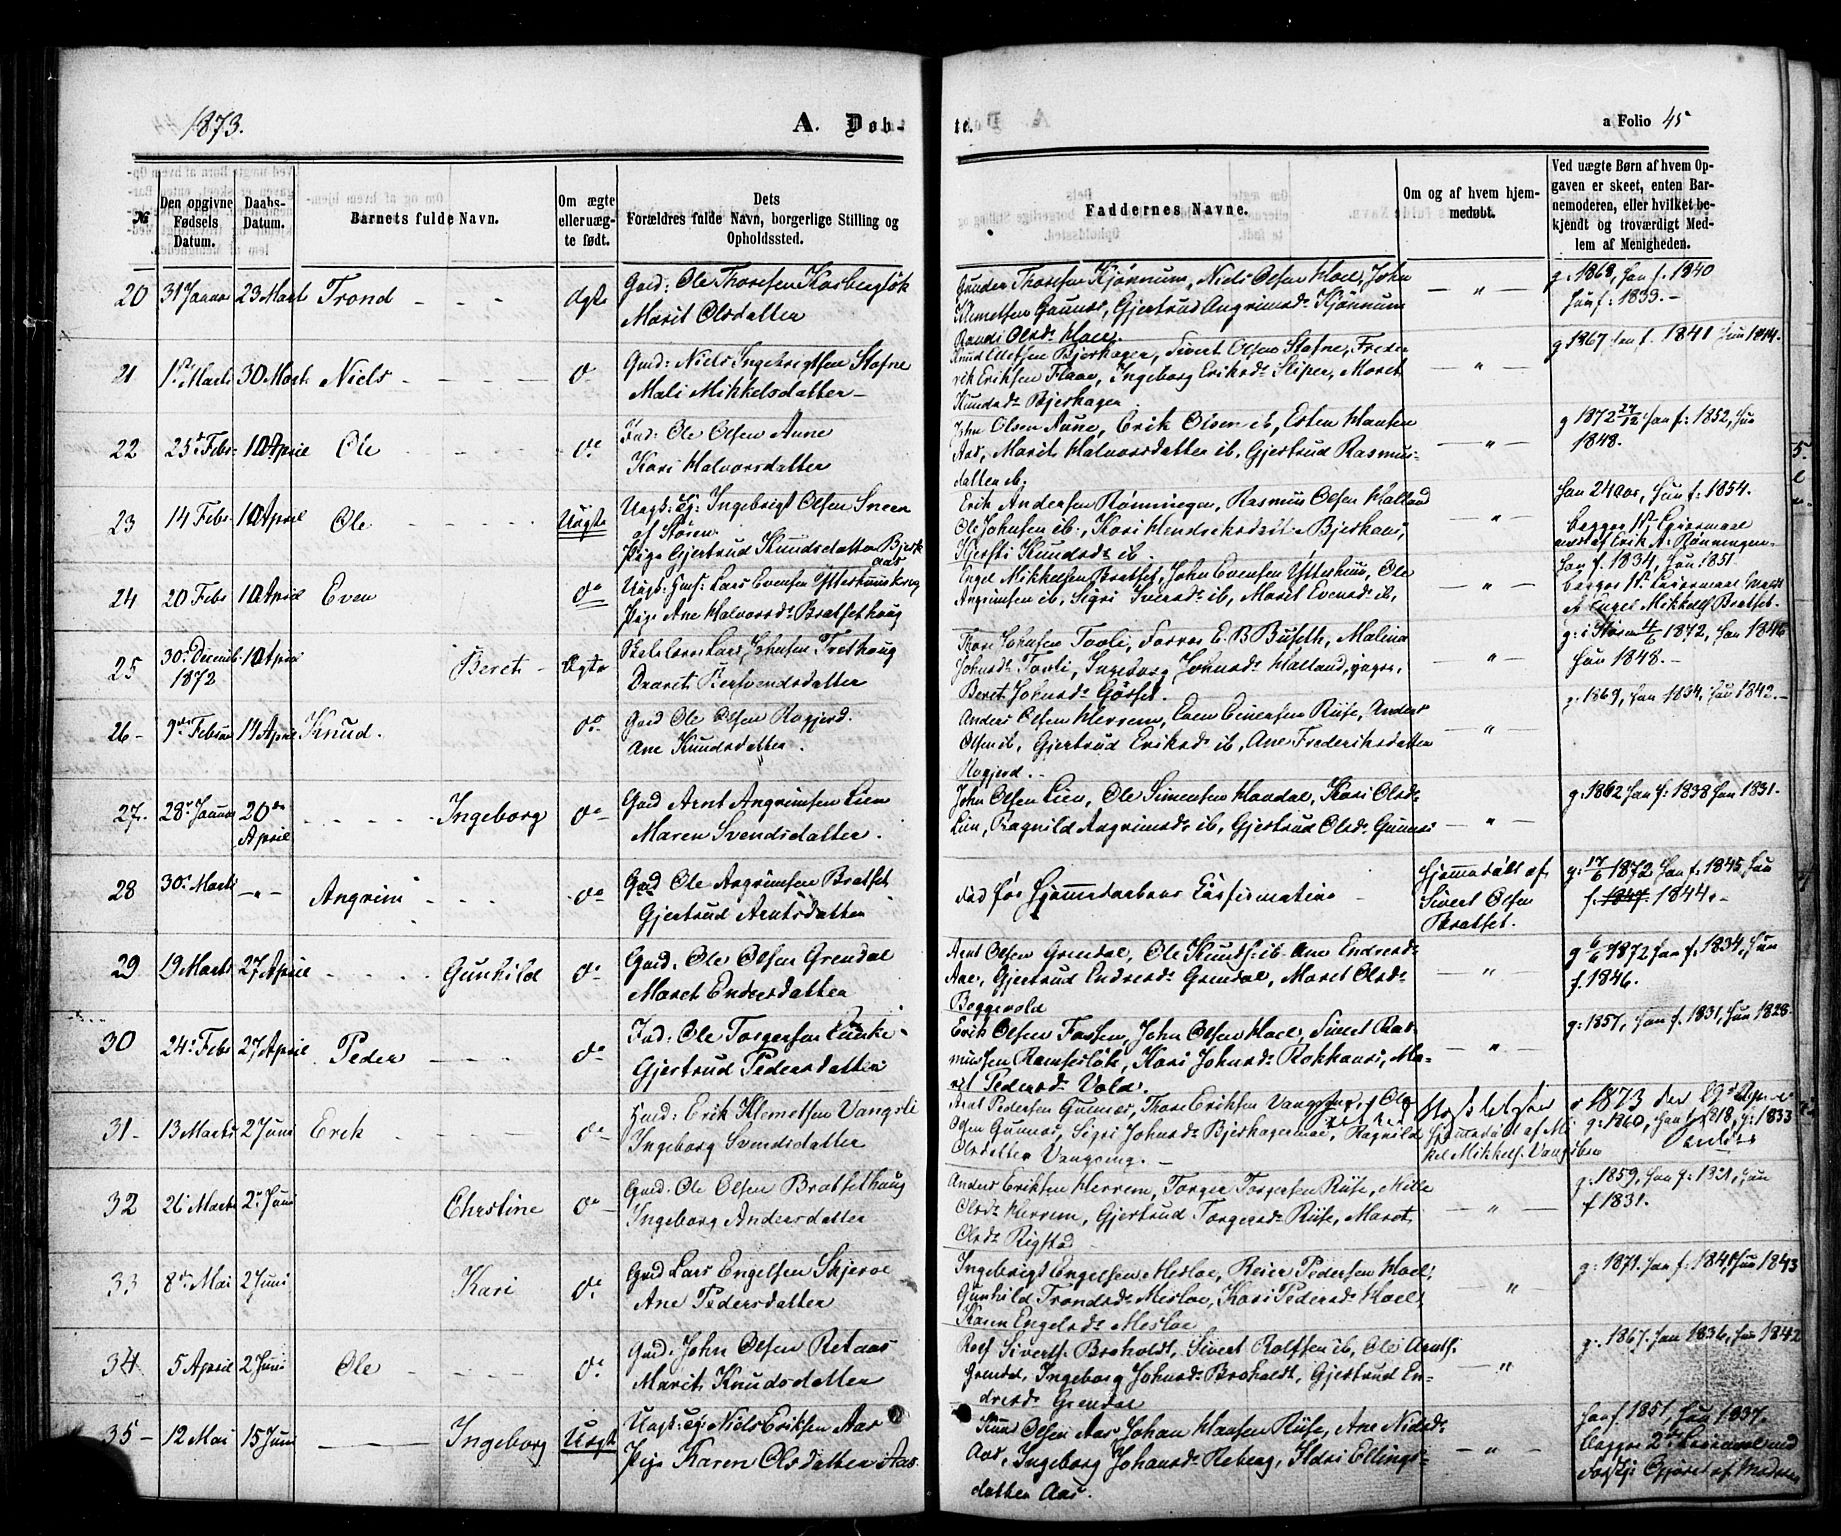 1873.
A. Døb-
te.
a Folio 45
№
Den opgivne Fødsels Datum.
Daabs-Datum.
Barnets fulde Navn.
Om ægte eller uægte født.
Dets Forældres fulde Navn, borgerlige Stilling og Opholdssted.
Faddernes Navne.
Om og af hvem hjemmedøbt.
Ved uægte Børn af hvem Opgaven er skeet, enten Barnemoderen, eller hvilket bekjendt og troværdigt Medlem af Menigheden.
20 31 Januar 23 Marts Trond Ægte Gmd: Ole Thoresen
Marit Olsdatter
Thoresen Kjønnum, Niels Olsen Hoel, John
Klemetsen Gunnes, Gjertrud Angrimsd. Kjønnum
Randi Olsd. Hoel.
g. 1868, han f. 1840
hun f. 1833.
21 1ste Marts 30 Marts Niels do Gmd: Niels Ingebrigtsen Stofne
Mali Mikkelsdatter
Bjerkager, Sivert Olsen Stofne, Frede-
rik Eriksen Flaae, Ingeborg Eriksd. Sliper, Maret
Knudsd. Bjerkager
g 1867 han f. 1841 hun 1844.
22 25 Febr 10 April Ole do Ind: Ole Olsen Aune
Kari Halvorsdatter
John Olsen Aune, Erik Olsen ib, Esten Hansen
Aas, Marit Halvorsdatter ib, Gjertrud Rasmus-
datter ib.
g 1872 27/12 han f: 1852, hun
1848.
23 14 Febr 10 April Ole Uægte Ungk: Ingebrigt Olsen Sneen
af Støren
Pige Gjertrud Knudsdatter Bjerk
aas
Erik Andersen Rønningen, Rasmus Olsen Halland
Ole Johnsen ib., Kari Hendriksdatter Bjerkaas,
Kjersti Knudsd. ib.
han 24 Aar, hun f: 1854.
begges 1st Leiermaal
meldt af Erik A. Rønningen.
24 20 Febr 10 April Even do Ungk: Lars Evensen
Pige Ane Halvorsd. Bratsethaug
Engel Mikkelsen Bratset, John Evensen Ytterhuus, Ole
Angrimsen ib, Sigri Iversd. ib, Maret Evensd. ib,
han f. 1834, hun 1851.
begges 1st Leiermaal Meldt
af Engel Mikkels. Bratset.
25 30 Decemb. 10 April Beret Ægte Lars Johnsen
1872
Bersvendsdatter
Thore Johnsen Tovli, E. B. Buseth, Malina
Johnsd. Tovli, Ingeborg Johnsd. Halland, yngre,
Beret Johnsd. Gisset.
g: i Støren 4/6 1872, han 1846
hun 1848.
26 9de Februar 14 April Knud. do Gmd Ole Olsen Hogjerd.
Ane Knudsdatter.
Anders Olsen Herrem, Even Evensen Riise, Anders
Olsen ib, Gjertrud Eriksd. ib, Ane Frederiksdatter
Hogjerd.
g. 1869, han 1834. hun 1842.
27. 28 Januar 20de Ingeborg do Gmd Arnt Angrimsen Lien
April Maren Svendsdatter.
John Olsen Lien, Ole Simensen Havdal, Kari Olsd.
Lien, Ragnild Angrimsd. ib, Gjertrud Olsd. Gunnes
g. 1862 han f. 1838 hun 1831.
28 30 Marts Angrim do Gmd Ole Angrimsen Bratset
Gjertrud Arntsdatter
død før Hjemmedaabens Confirmation
Hjemmedøbt af
Sivert Olsen
Bratset.
g: 17/6 1872 han f: 1845, hun
f. 1844.
29 19 Marts 27 April Gunhild do Gmd. Ole Olsen Grendal
Maret Endresdatter
Arnt Olsen Grendal, Ole Knuds. ib. Ane Endresd.
Aae, Gjertrud Endresd. Grendal, Maret Olsd.
Beggevold
1872 han f. 1834, hun
f. 1846.
30 24 Febr 27 April Peder do Ind: Ole Torgersen
Gjertrud Pedersdatter
Erik Olsen Fossem, John Olsen Hoel, Sivert Ras-
mussen, Kari Johnsd. Rokhaas, Ma-
ret Pedersd. Vold.
g: 1857, han f. 1831, hun 1828
31 13 Marts 2 Juni Erik do Gmd: Erik Klemetsen Vangsli
Ingeborg Svendsdatter
Arnt Pedersen Gunnes, Thore Eriksen, Ole
Gunnes, Sigri Johnsd. Bjerkagermoe, Ragnild
Olsdatter
Hjemmedøbt af Mi-
kel Mikkels.
1873
g: 1860, 1833
32 26 Marts 2 Juni Christine do Gmd. Ole Olsen Bratsethaug
Ingeborg Andersdatter
Anders Eriksen Herrem, Torger Torgersen Riise, Mille
Olsd. Herrem, Gjertrud Torgersd. Riise, Maret
Olsd. Rigstad
g. 1859, han f. 1831, hun
f 1831.
33 8de Mai 2 Juni Kari do Gmd Lars Engelsen Skjeroe
Ane Pedersdatter
Ingebrigt Engelsen Mesloe, Reier Pedersen Hoel,
Gunhild Trondsd. Mesloe, Kari Pedersd. Hoel,
Karen Engelsd. Mesloe
g: 1871. han f. 1841 hun 1843
34 5 April 2 Juni Ole do Gmd. John Olsen Retaas
Marit Knudsdatter
Rolf Siverts. Broholdt, Sivert Rolfsen ib, Ole Arnts.
Grendal, Ingeborg Johnsd. Broholdt, Gjertrud En-
dresd. Grendal
g. 1867. han 1836, hun 1842
35 12 Mai 15 Juni Ingeborg Uægte Ungk: Niels Eriksen Aas
Pige Karen Olsdatter Aas
Olsen Aas, Johan Hansen Riise, Ane Nielsd.
Aas, Ingeborg Johansd. Reberg, Ildri Ellings-
datter Aas.
han f. 1851, hun 1837.
begges 2 Leiermaal
af Moderen